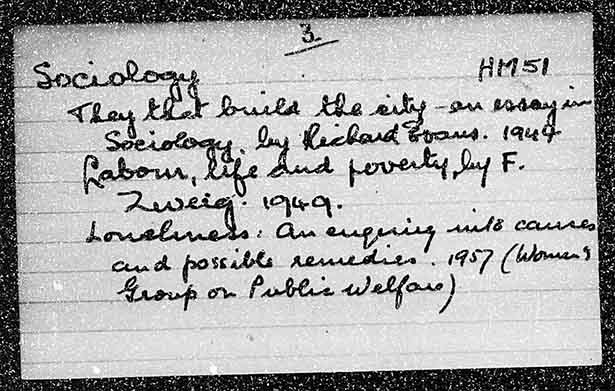 3.
Sociology HM51
They that build the city - an essay in
Sociology, by Richard Evans. 1944
Labour, life and poverty, by F.
Zweig. 1949.
Loneliness: An enquiry into causes
and possible remedies. 1957 (Womens
Group on Public Welfare)